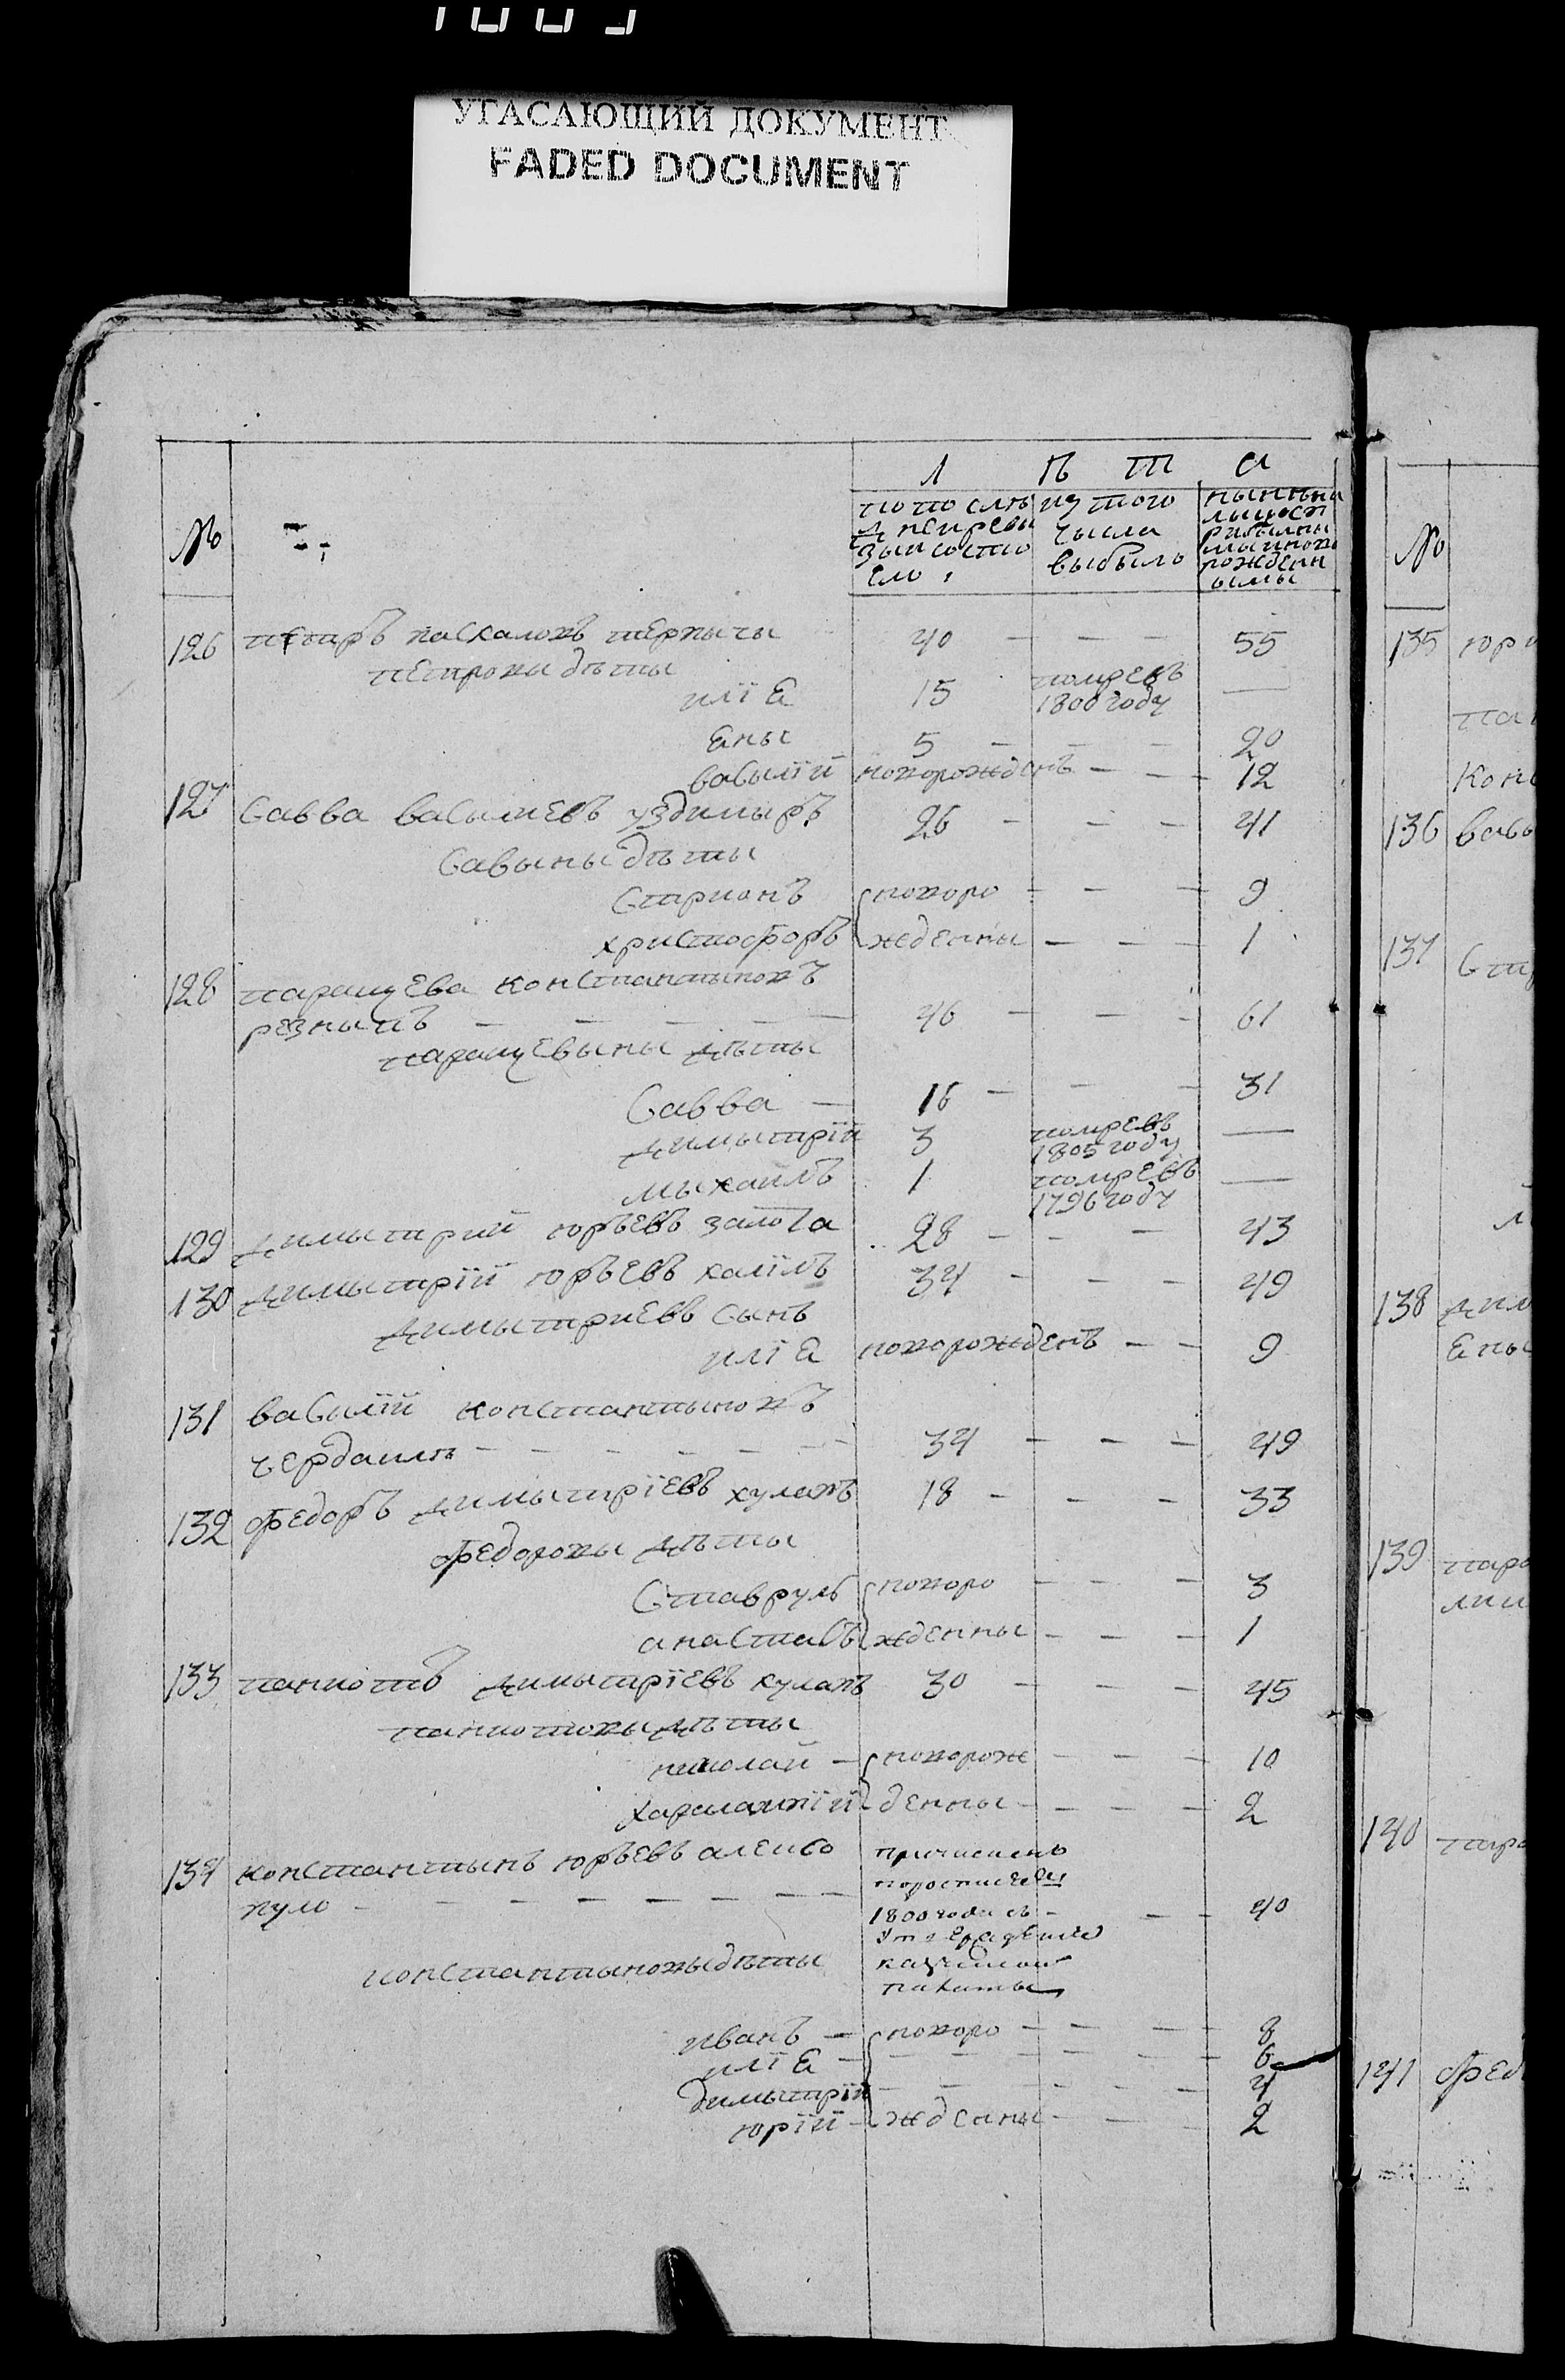 УГАСАЮЩИЙ ДОКУМЕНТ
FADED DOCUMENT
№
Л ѣ т а
по послѣ
д ней реви
зыи состо
ело
из того
числа
выбыло
№
126 петръ паскаловъ 40 — — — 55
петровы дѣты
илїе 15 помревъ 1800 году —
ены 5 — — — 20
васылїй новорожденъ — — 12
127 Савва васылиевъ уздимыръ 26 — — — 41
Савыны дѣты
Стрионъ новоро — — — 9
христофоръ жденны — — — 1
128 парацева константыновъ
резныпъ — — — — — 46 — — — 61
парацевыны дѣты
Савва — 16 — — — 31
димытрїй 3 помревъ 1805 году —
мыхаилъ 1 помревъ 1796 году —
129 димытрий юрьевъ залота 28 — — — 43
130 димытрїй юрьевъ халїлъ 34 — — — 49
димытриевъ сынъ
илїе новорожденъ — — 9
131 васылїй константыновъ
чердаилѣ — — — — — — 34 — — — 49
132 федоръ димытрїевъ кулавъ 18 — — — 33
федоровы дѣты
Ставруль новоро — — — 3
анастасъ жденны — — — 1
133 паниотъ димытрїевъ кулавъ 30 — — — 45
паниотовы дѣты
николай — новорож — — — 10
харалампїй денны — — — 2
134 константынъ юрьевъ алексо
пуло — — — — — — 40
причисленъ
1800 года съ
казенной
палаты
константыновы дѣты
иванъ — новоро — — — 8
илїе — — — — — 6
димытрїй — — — — 4
юрїй — жденны — — 2
135 юри
пан
кон
136 васы
137 Стр
138 дим
ены
139 пара
140 пара
141 фед